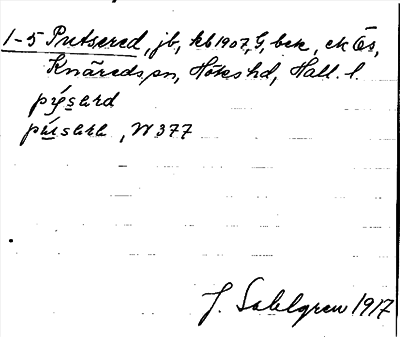 1-5 Putsered, jb, kb 1907, G, bek, ek Ös,
Knäreds sn, Höks hd, Hall. l.
, W 377
J. Sahlgren 1917